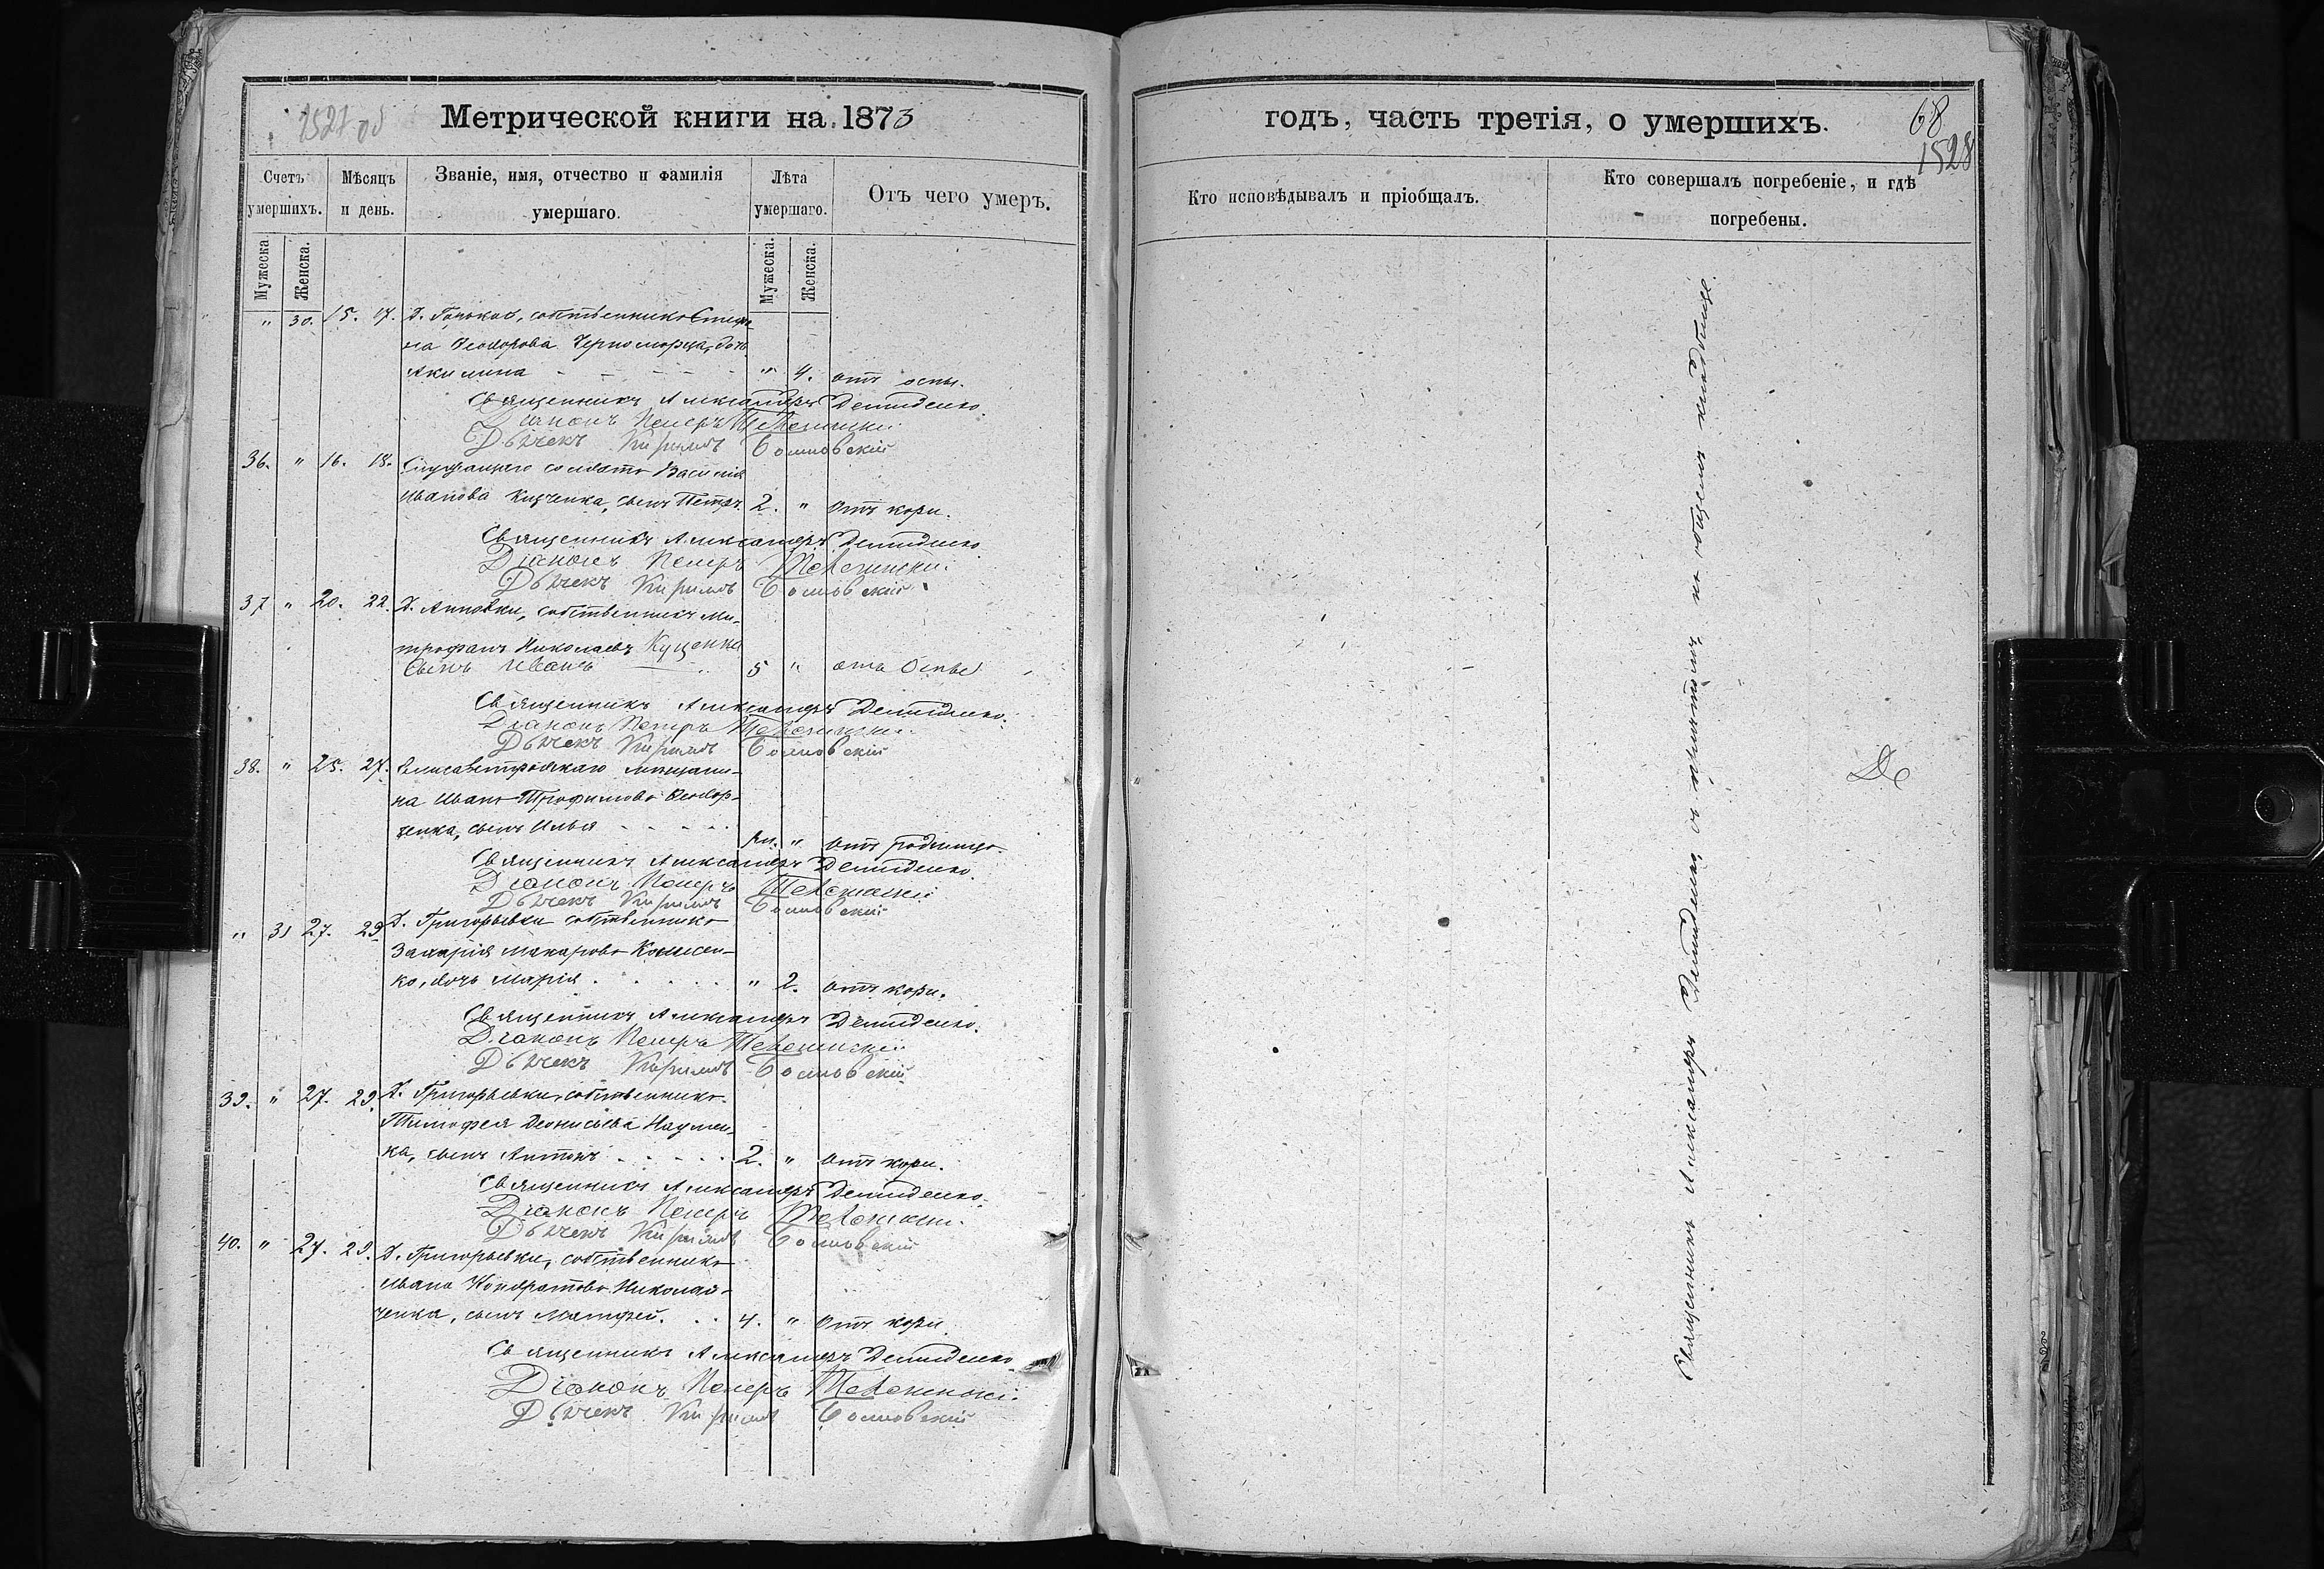 1527 об
Метрической книги на 1873
Счетъ умершихъ.
Мѣсяцъ и день.
Званіе, имя, отчество и фамилія умершаго.
Лѣта умершаго.
Отъ чего умеръ.
Мужеска.
Женска.
Мужеска.
Женска.
" 30. 15. 17. Д. собственника Стефа-
на Ѳеодорова Черноморца, дочь
Акилина " 4. отъ оспы.
Священникъ Александръ Демиденко.
Діаконъ Петръ
Дьячекъ Кириллъ
36. " 16. 18. Служащаго солдата Василія
Иванова сынъ Петръ. 2. " отъ кори.
Священникъ Александръ Демиденко
Діаконъ Петръ
Дьячекъ Кириллъ
37 " 20. 22. Д. Анновки, собственникъ Ми-
трофанъ Николаевъ Куценко
Сынъ Иванъ 5 " отъ Оспы
Священникъ Александръ Демиденко.
Діаконъ Петръ
Дьячекъ Кириллъ
38. " 25. 27. Елисаветградскаго мѣщани-
на Ивана Трофимова Ѳедор-
ченка, сынъ Илья " отъ родимца.
Священникъ Александръ Демиденко.
Діаконъ Петръ
Дьячекъ Кириллъ
" 31 27. 29. Д. Григорьевки собственника
Захарія Макарова
ко, дочь Марія " 2. отъ кори.
Священникъ Александръ Демиденко.
Діаконъ Петръ
Дьячекъ Кириллъ
39. " 27. 29. Д. Григорьевки, собственника
Тимофея Діонисьева Наумен-
ка, сынъ Антонъ 2. " отъ кори.
Священникъ Александръ Демиденко.
Діаконъ Петръ
Дьячекъ Кириллъ
40. " 27. 29. Д. Григорьевки, собственника
Ивана Кондратова Николай-
ченка, сынъ Матфей. 4. " отъ кори
Священникъ Александръ Демиденко
Діаконъ Петръ
Дьячекъ Кириллъ
годъ, часть третія, о умершихъ.
68
1528
Кто исповѣдывалъ и пріобщалъ.
Кто совершалъ погребеніе, и гдѣ погребены.
Священникъ Александръ Демиденко съ причтомъ, на общемъ кладбищѣ.